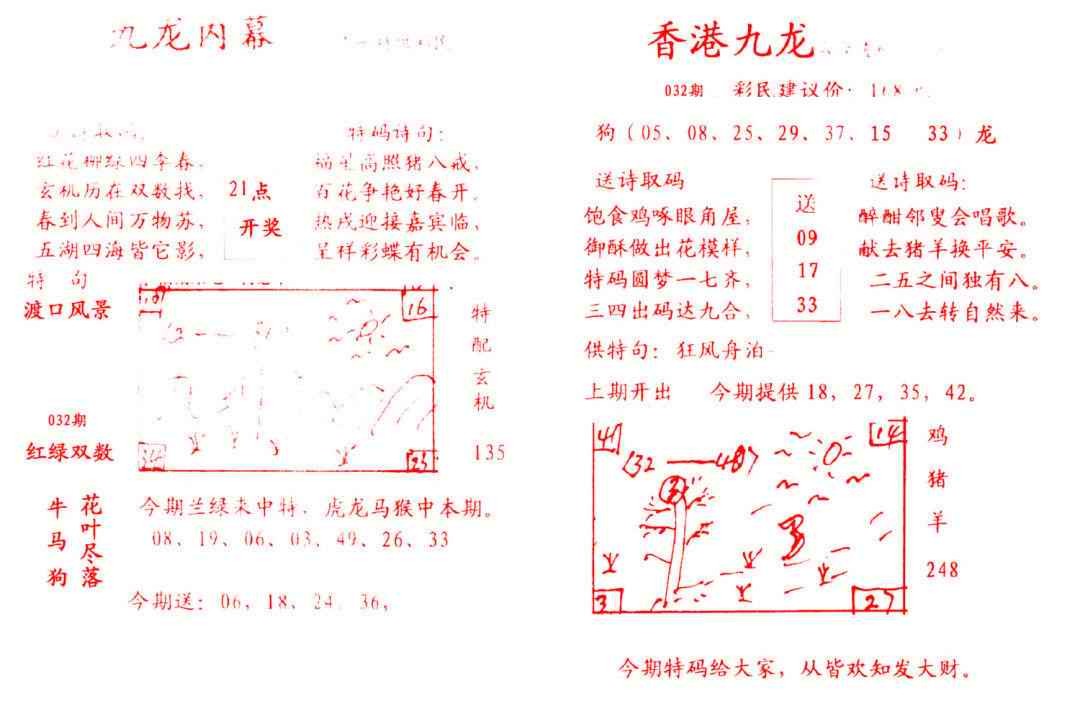 九龙内幕
特码诗句：
红花柳绿四季春，
玄机历在双数找，
春到人间万物苏，
五湖四海皆它影，
21点
开奖
福星高照猪八戒，
百花争艳好春开。
热戌迎接嘉宾临，
呈祥彩蝶有机会。
特 句
渡口风景
16
23
特配玄机
135
032期
红绿双数
牛马狗
花叶尽落
今期兰绿未中特，虎龙马猴中本期。
08、19、06、03、49、26、33
今期送：06，18，24，36，
香港九龙
032期 彩民建议价：
狗（05、08、25、29、37、15 33）龙
送诗取码
饱食鸡啄眼角屋，
御酥做出花模样，
特码圆梦一七齐，
三四出码达九合，
送
09
17
33
送诗取码：
醉酣邻叟会唱歌。
献去猪羊换平安。
二五之间独有八。
一八去转自然来。
供特句：狂风舟泊
上期开出 今期提供18，27，35，42。
41
14
3
27
鸡
猪
羊
248
今期特码给大家，从皆欢知发大财。